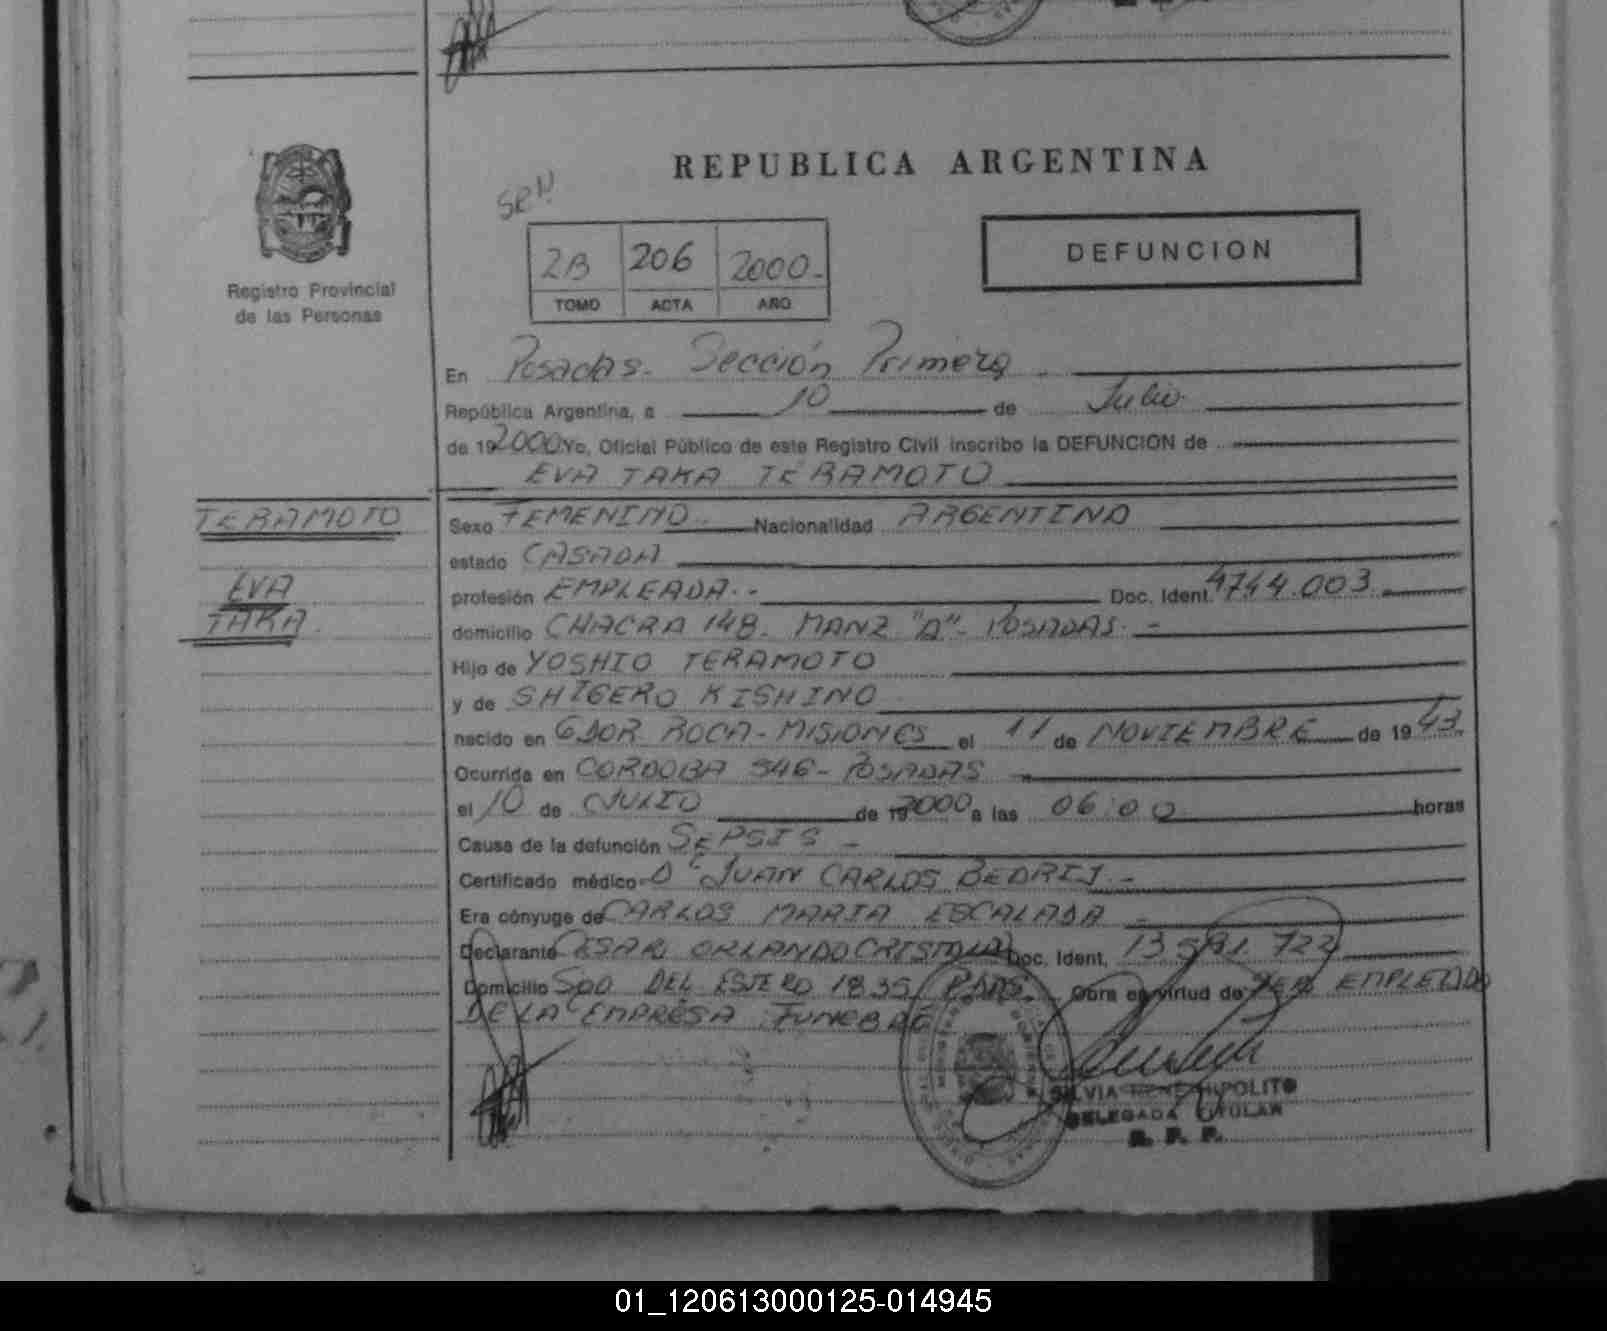 REPUBLICA ARGENTINA
SRN
2B 206 2000.-
TOMO ACTA AÑO
DEFUNCION
Registro Provincial
de las Personas
En Posadas. Sección Primera
República Argentina, a 10 de Julio
de 192000 Yo, Oficial Público de este Registro Civil inscribo la DEFUNCION de
EVA TAKA TERAMOTO
TERAMOTO
EVA
TAKA
Sexo FEMENINO.- Nacionalidad ARGENTINA
estado CASADA
profesión EMPLEADA.- Doc. Ident. 4744.003
domicilio CHACRA 148. MANZ "A"- POSADAS.-
Hijo de YOSHIO TERAMOTO
y de SHIGERO KISHINO
nacido en GDOR ROCA-MISIONES el 11 de NOVIEMBRE de 1943.
Ocurrida en CORDOBA 546- POSADAS
el 10 de JULIO de 192000 a las 06:00 horas
Causa de la defunción SEPSIS -
Certificado médico JUAN CARLOS BEDRIJ.-
Era cónyuge de CARLOS MARIA ESCALADA -
Declarante CESAR ORLANDO Doc. Ident. 13.581.722
Domicilio SGO DEL ESTERO 1835 PDAS. Obra en virtud de SER EMPLEADO
DE LA EMPRESA FUNEBRE
SILVIA RENE HIPOLITO
DELEGADA TITULAR
R. P. P.
01_120613000125-014945